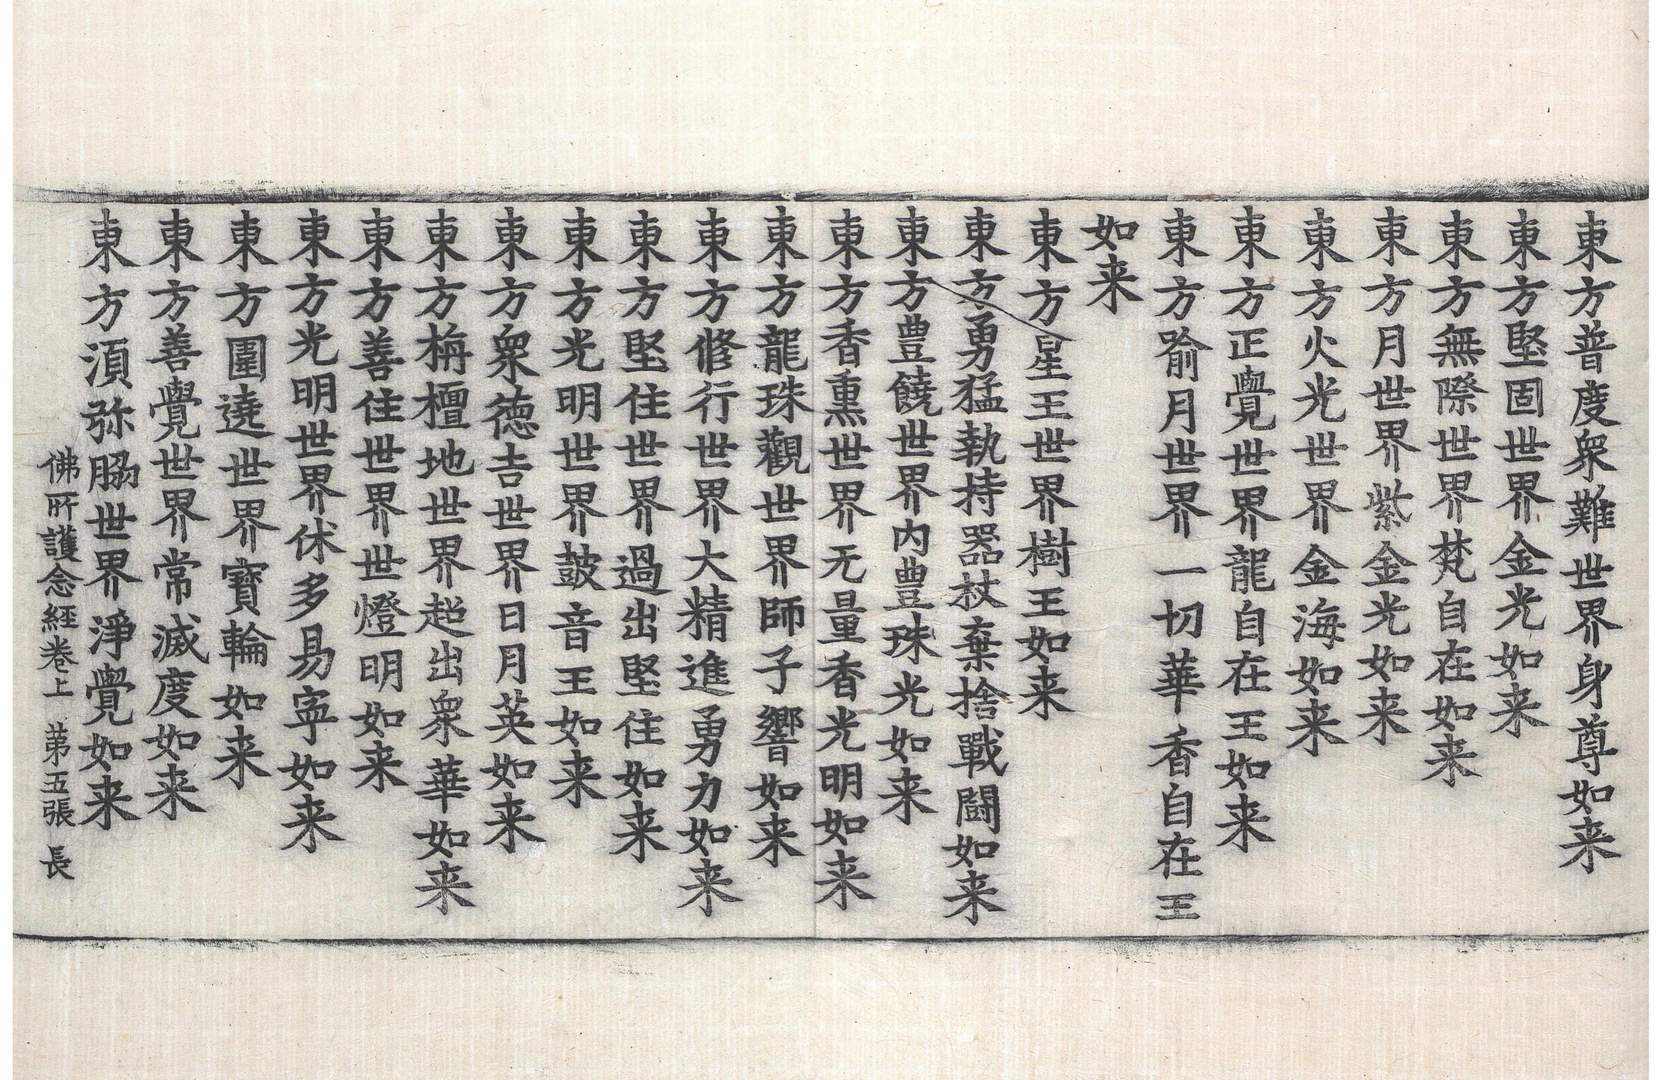 東方普度衆難世界身尊如来
東方堅固世界金光如来
東方無際世界梵自在如来
東方月世界紫金光如来
東方火光世界金海如来
東方正覺世界龍自在王如来
東方喻月世界一切華香自在王
如来
東方星王世界樹王如来
東方勇猛執持器杖棄捨戰闘如来
東方豊饒世界内豊珠光如来
東方香熏世界无量香光明如来
東方龍珠觀世界師子響如来
東方修行世界大精進勇力如来
東方堅住世界過出堅住如来
東方光明世界鼓音王如来
東方衆德吉世界日月英如来
東方栴檀地世界超出衆華如来
東方善住世界世燈明如来
東方光明世界休多易寧如来
東方圍遶世界寶輪如来
東方善覺世界常滅度如来
東方湏弥脇世界淨覺如来
佛所護念經卷上 苐五張 長